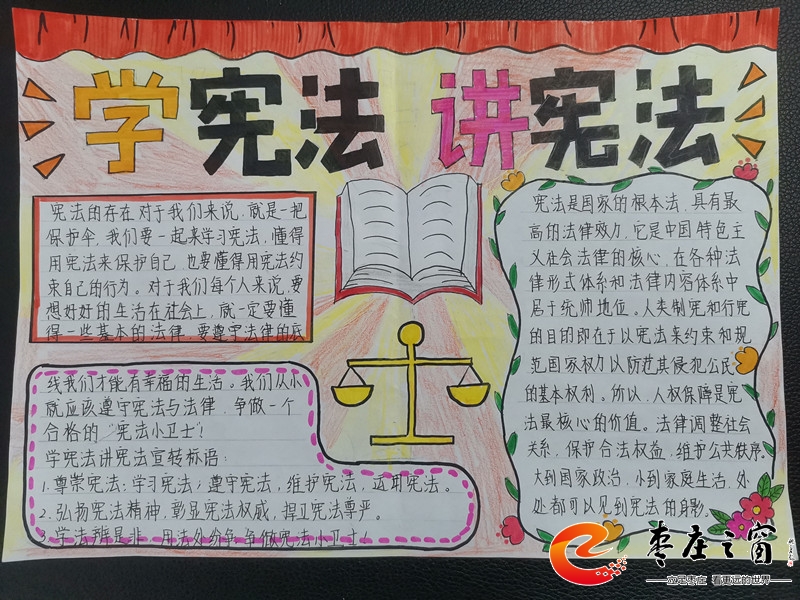 学宪法 讲宪法
宪法的存在对于我们来说,就是一把
保护伞,我们要一起来学习宪法,懂得
用宪法来保护自己,也要懂得用宪法约
束自己的行为。对于我们每个人来说,要
想好好的生活在社会上,就一定要懂
得一些基本的法律,要遵守法律的底
线我们才能有幸福的生活。我们从小
就应该遵守宪法与法律,争做一个
合格的“宪法小卫士”!
学宪法讲宪法宣转标语:
1.尊崇宪法;学习宪法;遵守宪法,维护宪法,运用宪法。
2.弘扬宪法精神,彰显宪法权威,捍卫宪法尊严。
3.学法辨是非 用法处纷争 争做宪法小卫士!
宪法是国家的根本法,具有最
高的法律效力,它是中国特色主
义社会法律的核心,在各种法
律形式体系和法律内容体系中
居于统帅地位。人类制宪和行宪
的目的即在于以宪法来约束和规
范国家权力以防范其侵犯公民
的基本权利。所以,人权保障是宪
法最核心的价值。法律调整社会
关系,保护合法权益,维护公共秩序。
大到国家政治,小到家庭生活,处
处都可以见到宪法的身影。
枣庄之窗
看更远的世界